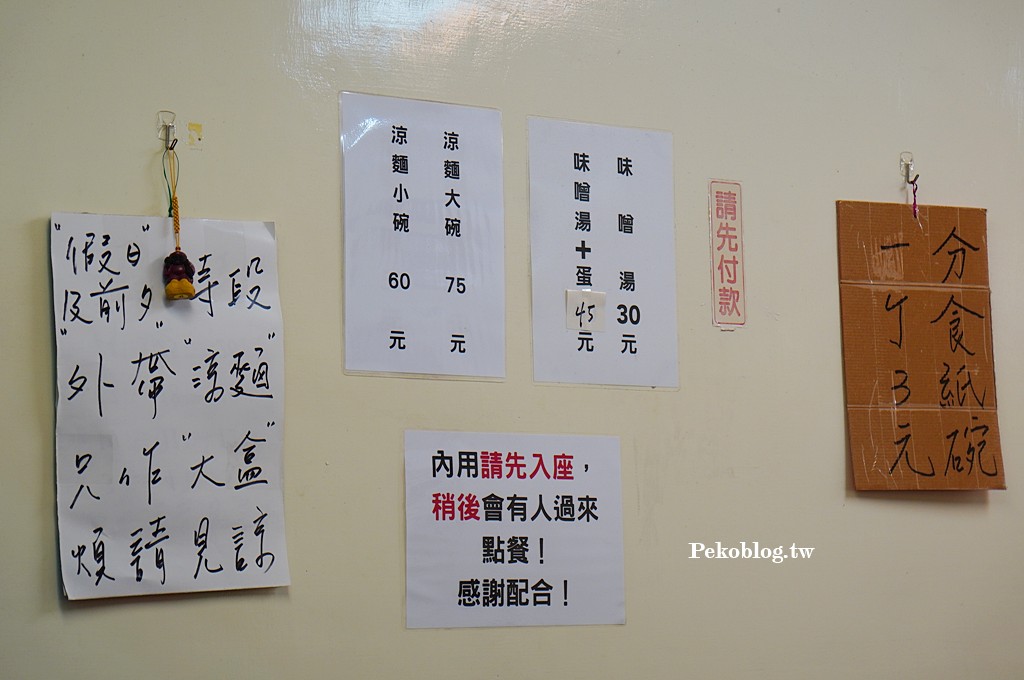 "假日"
及前夕"時段
"外帶"涼麵"
只作"大盒"
煩請見諒
涼麵大碗 75 元
涼麵小碗 60 元
味噌湯 30 元
味噌湯+蛋 45 元
請先付款
分食紙碗
一個3元
內用請先入座,
稍後會有人過來
點餐!
感謝配合!
Pekoblog.tw